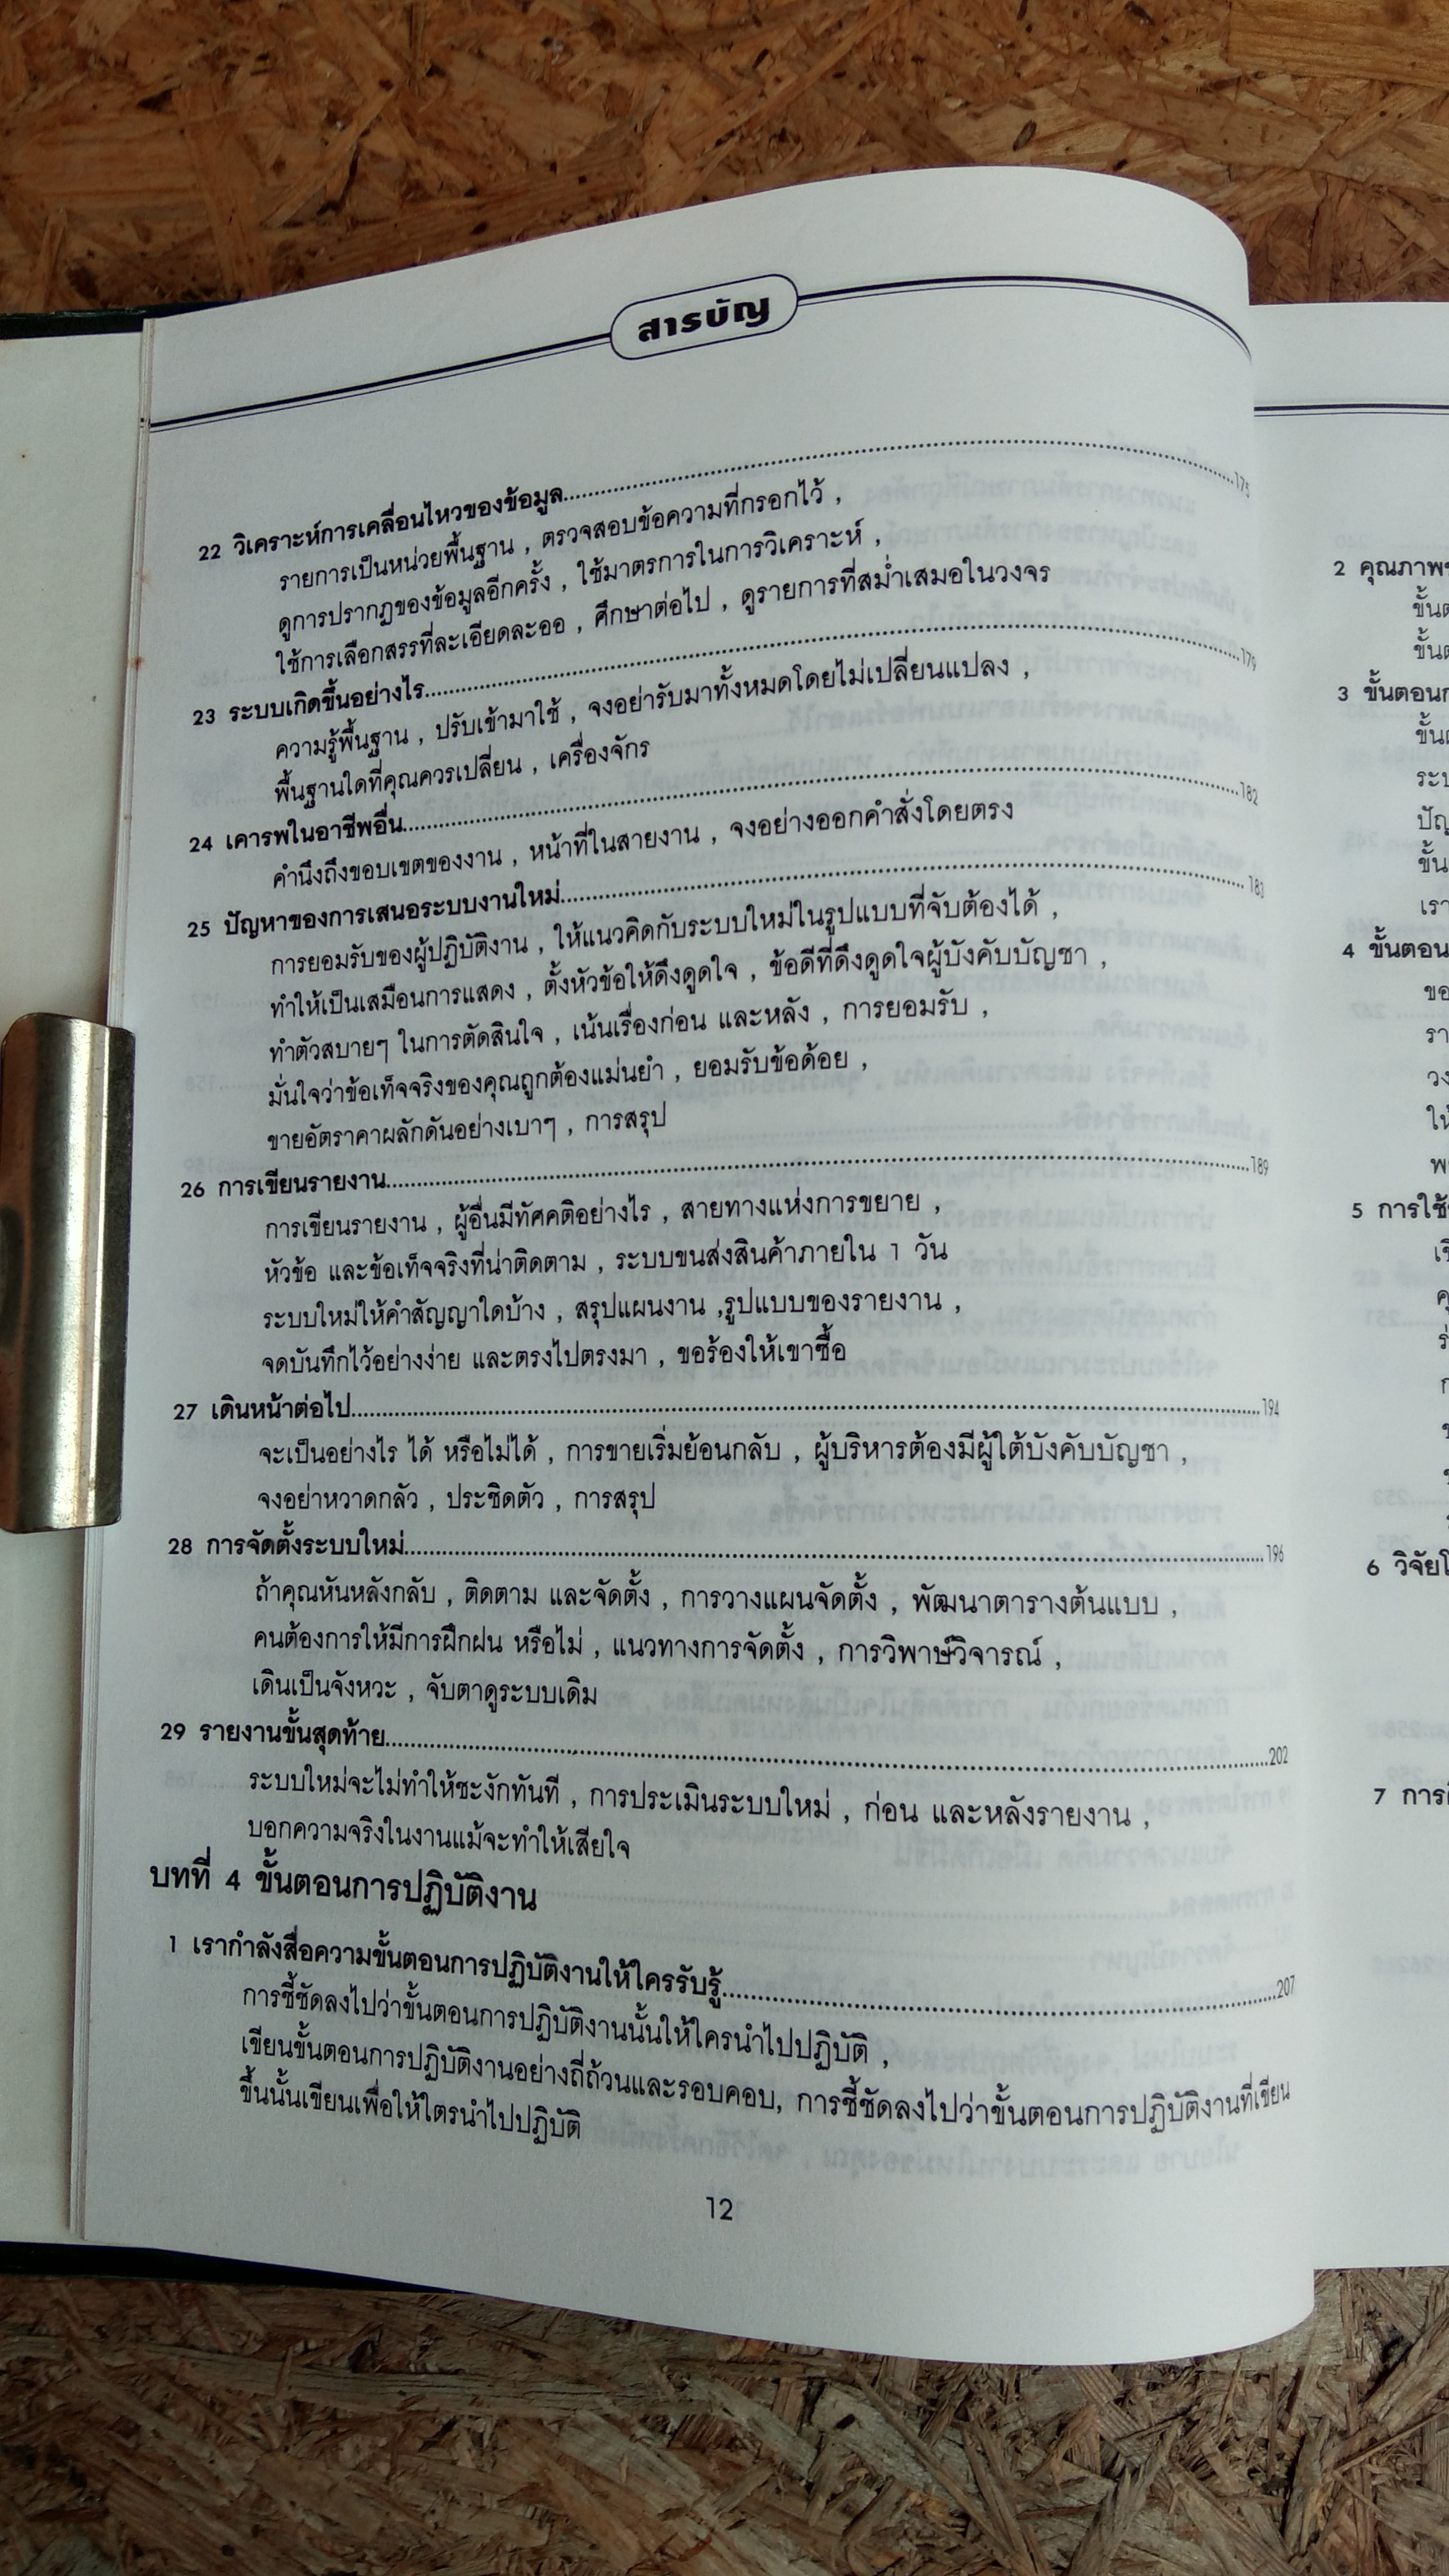 สารบัญ
22 วิเคราะห์การเคลื่อนไหวของข้อมูล........175
รายการเป็นหน่วยพื้นฐาน , ตรวจสอบข้อความที่กรอกไว้ ,
ดูการปรากฏของข้อมูลอีกครั้ง , ใช้มาตรการในการวิเคราะห์ ,
ใช้การเลือกสรรที่ละเอียดละออ , ศึกษาต่อไป , ดูรายการที่สม่ำเสมอในวงจร
23 ระบบเกิดขึ้นอย่างไร........179
ความรู้พื้นฐาน , ปรับเข้ามาใช้ , จงอย่ารับมาทั้งหมดโดยไม่เปลี่ยนแปลง ,
พื้นฐานใดที่คุณควรเปลี่ยน , เครื่องจักร
24 เคารพในอาชีพอื่น........182
คำนึงถึงขอบเขตของงาน , หน้าที่ในสายงาน , จงอย่างออกคำสั่งโดยตรง
25 ปัญหาของการเสนอระบบงานใหม่........183
การยอมรับของผู้ปฏิบัติงาน , ให้แนวคิดกับระบบใหม่ในรูปแบบที่จับต้องได้ ,
ทำให้เป็นเสมือนการแสดง , ตั้งหัวข้อให้ดึงดูดใจ , ข้อดีที่ดึงดูดใจผู้บังคับบัญชา ,
ทำตัวสบายๆ ในการตัดสินใจ , เน้นเรื่องก่อน และหลัง , การยอมรับ ,
มั่นใจว่าข้อเท็จจริงของคุณถูกต้องแม่นยำ , ยอมรับข้อด้อย ,
ขายอัตราคาผลักดันอย่างเบาๆ , การสรุป
26 การเขียนรายงาน........189
การเขียนรายงาน , ผู้อื่นมีทัศคติอย่างไร , สายทางแห่งการขยาย ,
หัวข้อ และข้อเท็จจริงที่น่าติดตาม , ระบบขนส่งสินค้าภายใน 1 วัน
ระบบใหม่ให้คำสัญญาใดบ้าง , สรุปแผนงาน ,รูปแบบของรายงาน ,
จดบันทึกไว้อย่างง่าย และตรงไปตรงมา , ขอร้องให้เขาซื้อ
27 เดินหน้าต่อไป........194
จะเป็นอย่างไร ได้ หรือไม่ได้ , การขายเริ่มย้อนกลับ , ผู้บริหารต้องมีผู้ใต้บังคับบัญชา ,
จงอย่าหวาดกลัว , ประชิดตัว , การสรุป
28 การจัดตั้งระบบใหม่........196
ถ้าคุณหันหลังกลับ , ติดตาม และจัดตั้ง , การวางแผนจัดตั้ง , พัฒนาตารางต้นแบบ ,
คนต้องการให้มีการฝึกฝน หรือไม่ , แนวทางการจัดตั้ง , การวิพาษ์วิจารณ์ ,
เดินเป็นจังหวะ , จับตาดูระบบเดิม
29 รายงานขั้นสุดท้าย........202
ระบบใหม่จะไม่ทำให้ชะงักทันที , การประเมินระบบใหม่ , ก่อน และหลังรายงาน ,
บอกความจริงในงานแม้จะทำให้เสียใจ
บทที่ 4 ขั้นตอนการปฏิบัติงาน
1 เรากำลังสื่อความขั้นตอนการปฏิบัติงานให้ใครรับรู้........207
การชี้ชัดลงไปว่าขั้นตอนการปฏิบัติงานนั้นให้ใครนำไปปฏิบัติ ,
เขียนขั้นตอนการปฏิบัติงานอย่างถี่ถ้วนและรอบคอบ, การชี้ชัดลงไปว่าขั้นตอนการปฏิบัติงานที่เขียน
ขึ้นนั้นเขียนเพื่อให้ใตรนำไปปฏิบัติ
12
2 คุณภาพ
3 ขั้นตอน
4 ขั้นตอน
5 การใช้
6 วิจัย
7 การ